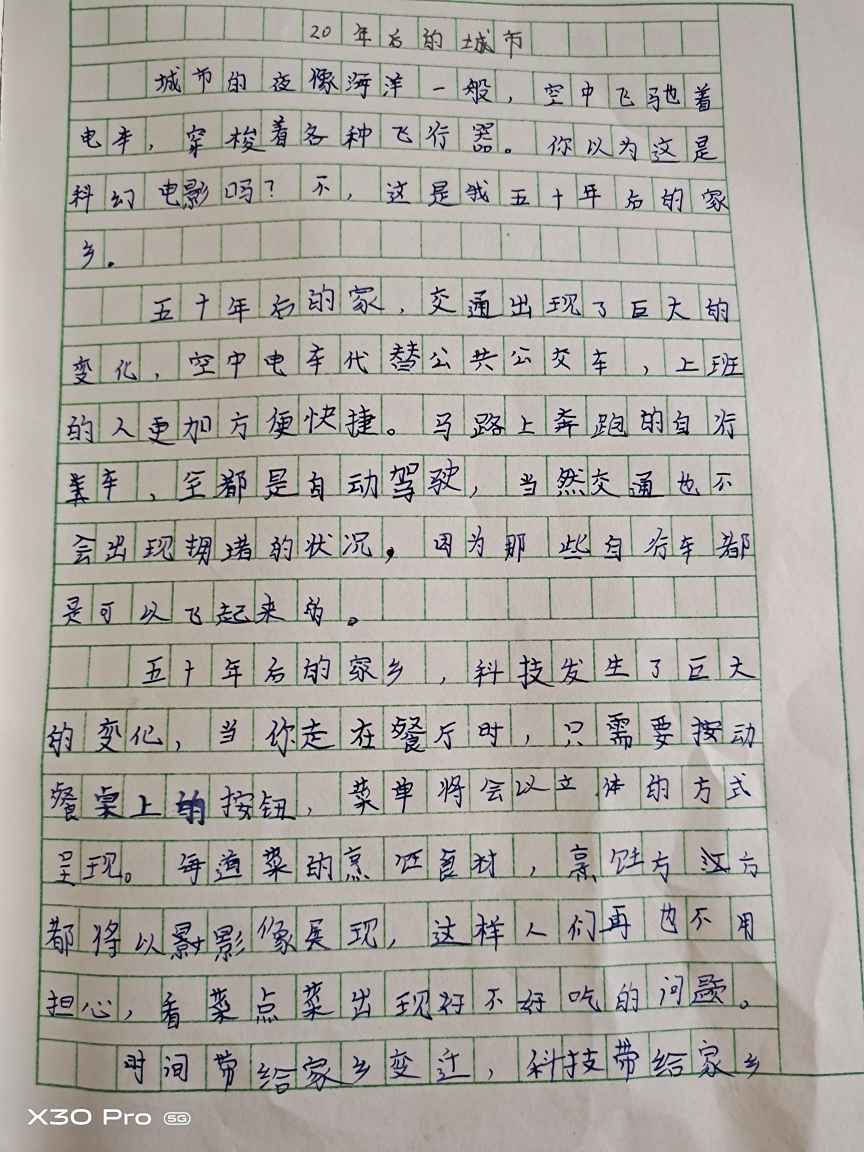 20年后的城市
城市的夜像海洋一般，空中飞驰着
电车，穿梭着各种飞行器。你以为这是
科幻电影吗？不，这是我五十年后的家
乡。
五十年后的家，交通出现了巨大的
变化，空中电车代替公共公交车，上班
的人更加方便快捷。马路上奔跑的自行
车，全都是自动驾驶，当然交通也不
会出现堵的状况，因为那些自行车都
是可以飞起来的。
五十年后的家乡，科技发生了巨大
的变化，当你走在餐厅时，只需要按动
餐桌上的按钮，菜单将会以立体的方式
呈现。每道菜的烹饪食材，烹饪方方
都将以影像展现，这样人们再也不用
担心，看菜点菜出现好不好吃的问题。
时间带给家乡变迁，科技带给家乡
X30 Pro 5G